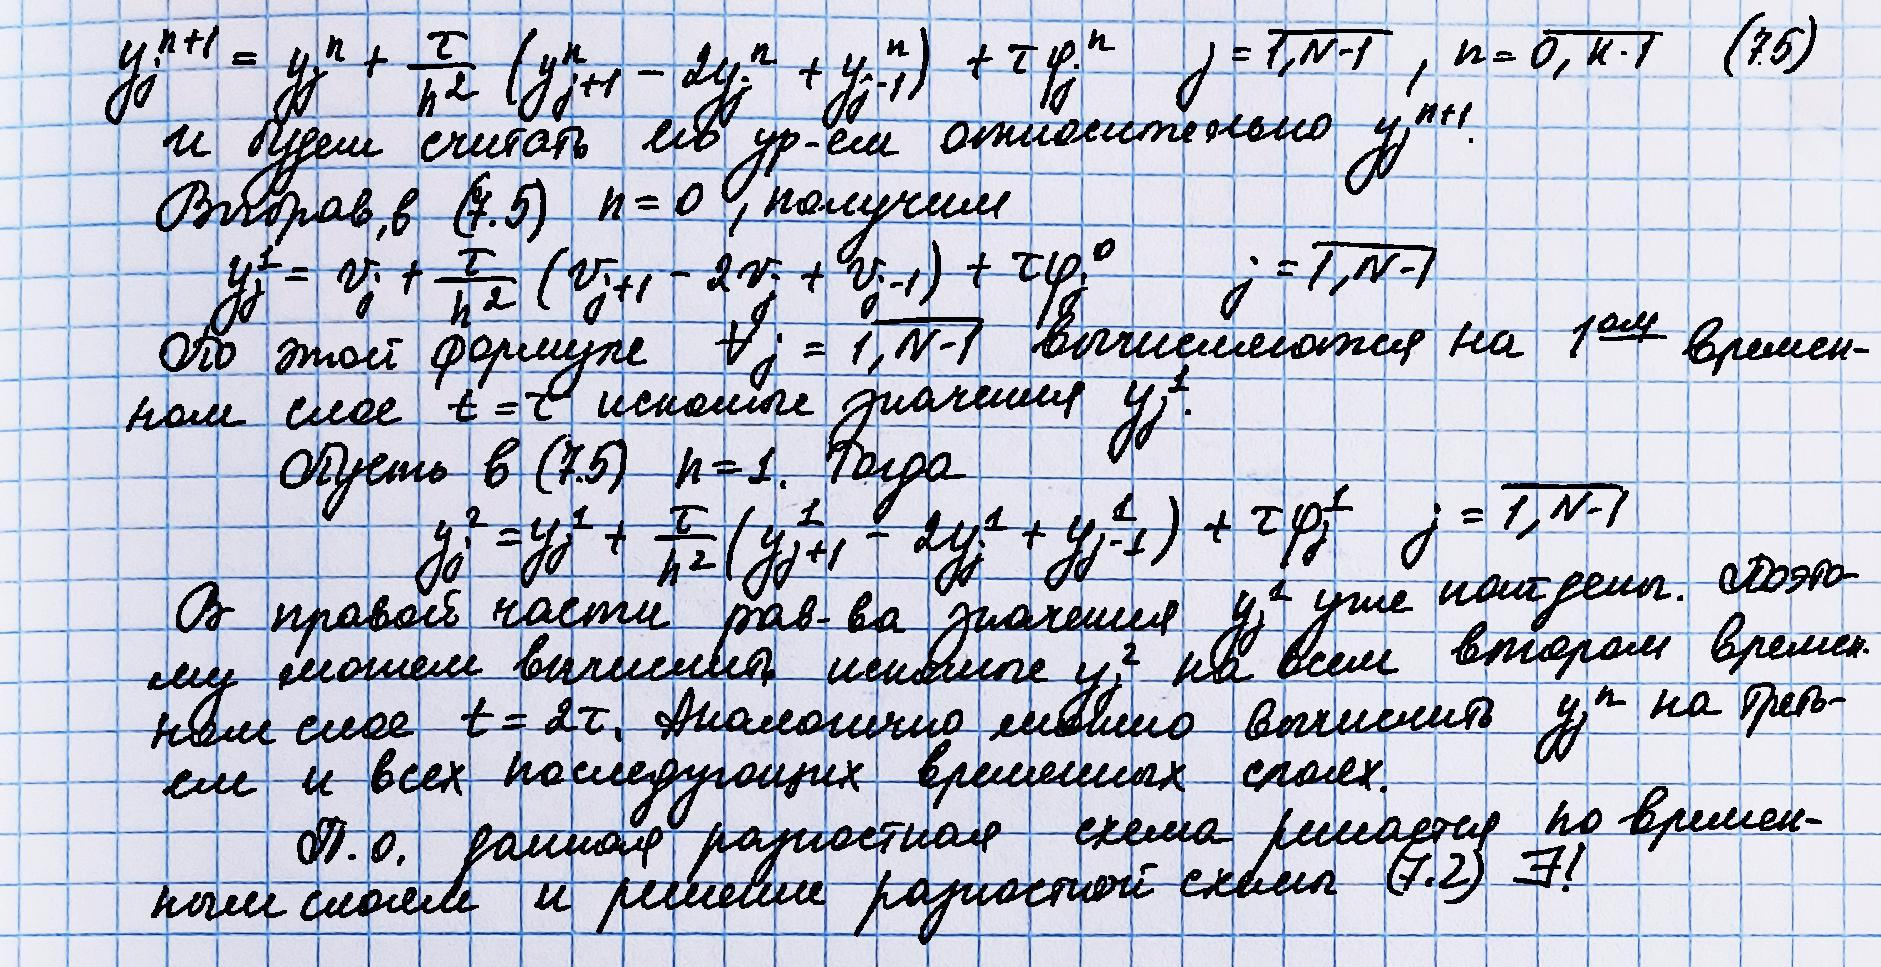 y_j^{n+1} = y_j^n + τ/h² (y_{j+1}^n - 2y_j^n + y_{j-1}^n) + τφ_j^n   j = \overline{1,N-1}, n = \overline{0,K-1}   (7.5)
и будем считать его ур-ем относительно y_j^{n+1}.
Выбрав, в (7.5) n=0, получим
y_j^1 = v_j + τ/h² (v_{j+1} - 2v_j + v_{j-1}) + τφ_j^0   j = \overline{1,N-1}
По этой формуле ∀j = \overline{1,N-1} вычисляются на 1^{ом} времен-
ном слое t=τ искомые значения y_j^1.
Пусть в (7.5) n=1. Тогда
y_j^2 = y_j^1 + τ/h² (y_{j+1}^1 - 2y_j^1 + y_{j-1}^1) + τφ_j^1   j = \overline{1,N-1}
В правой части рав-ва значения y_j^1 уже найдены. Поэто-
му можем вычислить искомые y_j^2 на всем втором времен-
ном слое t=2τ. Аналогично можно вычислить y_j^n на треть-
ем и всех последующих временных слоях.
Т.о. данная разностная схема решается по времен-
ным слоям и решение разностной схемы (7.2) ∃!